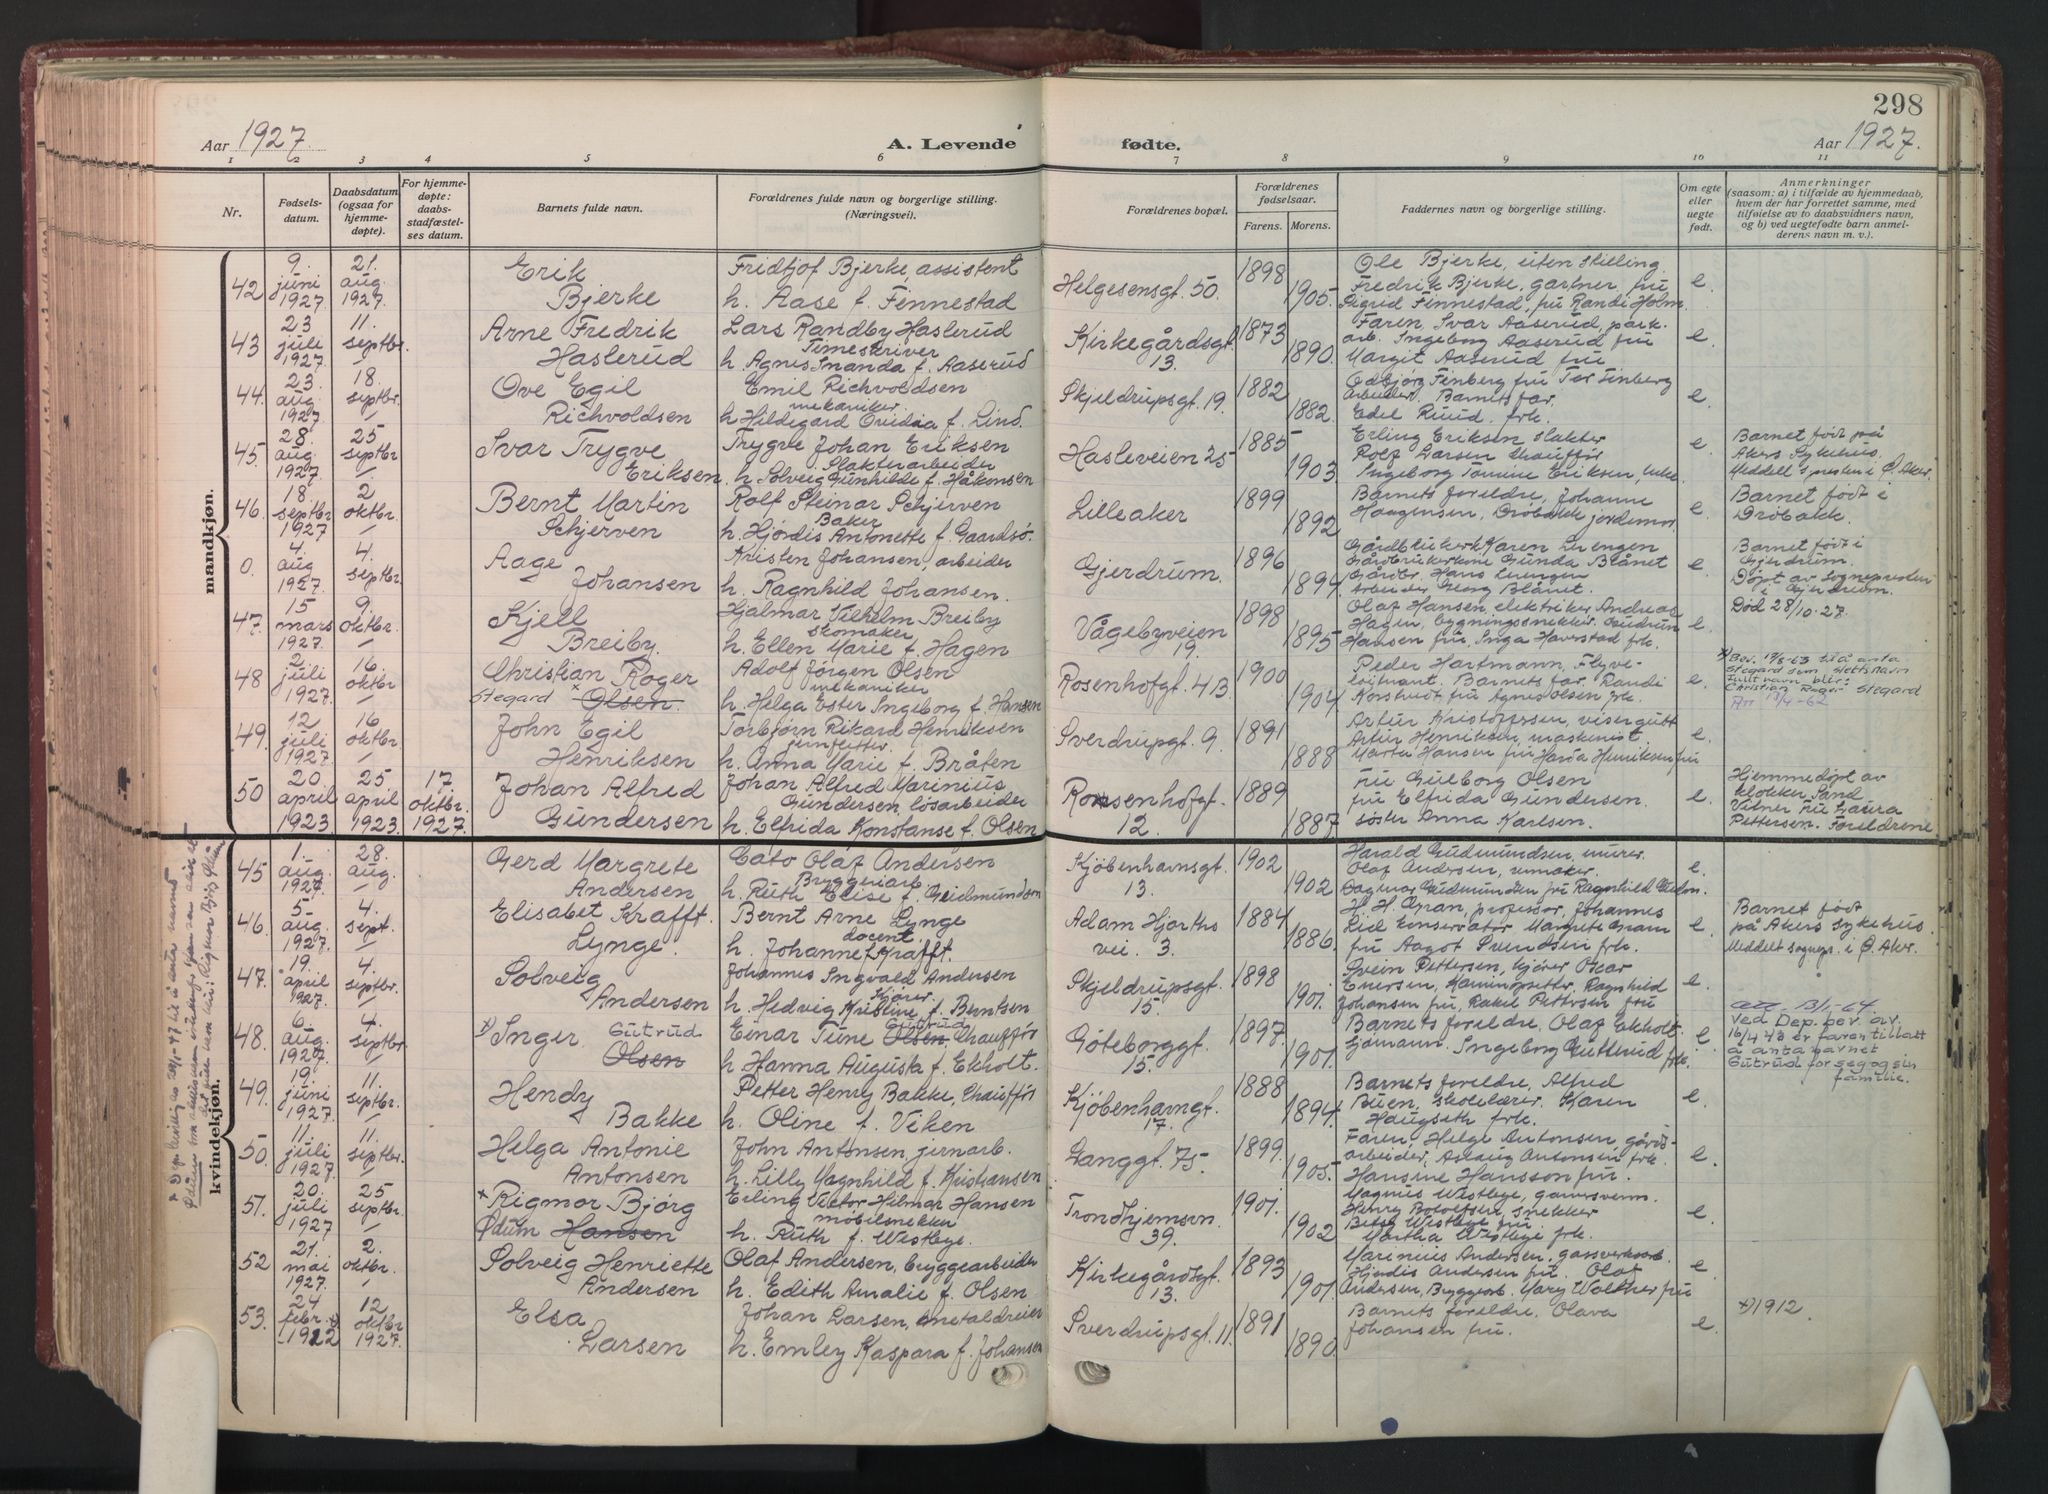 298
Aar 1927.
A. Levende
fødte.
Aar 1927.
1 2 3 4 5 6 7 8 9 10 11
Nr.
Fødsels-
datum.
Daabsdatum
(ogsaa for
hjemme-
døpte).
For hjemme-
døpte:
daabs-
stadfæstel-
ses datum.
Barnets fulde navn.
Forældrenes fulde navn og borgerlige stilling.
(Næringsvei).
Forældrenes bopæl.
Forældrenes
fødselsaar.
Farens. Morens.
Faddernes navn og borgerlige stilling.
Om egte
eller
uegte
født.
Anmerkninger
(saasom: a) i tilfælde av hjemmedaab,
hvem der har forrettet samme, med
tilføielse av to daabsvidners navn,
og b) ved uegtefødte barn anmel-
derens navn m. v.).
mandkjøn.
42 9. juni 1927. 21. aug. 1927.
Erik
Bjerke
Fridtjof Bjerke, assistent
h. Aase f. Finnestad
Helgesensgt. 50.
1898 1905.
Ole Bjerke, uten stilling.
Fredrik Bjerke, gartner, fru
Sigrid Finnestad, fru Randi Holm
e.
43 23 juli 1927. 11. septbr.
Arne Fredrik
Haslerud
Lars Randby Haslerud
Timeskriver
h. Agnes Smanda f. Aaserud
Kirkegårdsgt.
13.
1873 1890.
Faren, Ivar Aaserud, park.
arb. Ingeborg Aaserud fru
Margit Aaserud fru
e.
44. 23. aug. 1927 18. septbr. /
Ove Egil
Richvoldsen
Emil Richvoldsen
mekaniker
h. Hildegard Ovidia f. Lind.
Skjeldrupsgt. 19.
1882 1882.
Odbjørg Finberg fru Tor Finberg
arbeider. Barnets far.
Edel Ruud. frk.
e.
45. 28. aug. 1927. 25 septbr /
Ivar Trygve
Eriksen
Trygve Johan Eriksen
Slakterarbeider
h. Solveig Gunhilde f. Håkonsen
Hasleveien 25
1885 1903
Erling Eriksen slakter
Rolf Larsen chauffør
Ingeborg Tomine Eriksen, enke.
e
Barnet født på
Akers Sykehus.
Meddelt spresten i Ø. Aker.
46. 18. septbr 1927 2 oktbr. /
Bernt Martin
Schjerven
Rolf Steinar Schjerven
Baker
h. Hjørdis Antonette f. Gaardsø.
Lilleaker
1899 1892
Barnets foreldre, Johanne
Haagensen, Drøbakk jordemor
e.
Barnet født i
Drøbakk.
0. 4. aug 1927. 4. septbr.
Aage
Johansen
Kristen Johansen, arbeider
h. Ragnhild Johansen.
Gjerdrum.
1896 1894.
Karen Luengen
Gunda Blånet
Gårdbr. Hans Luengen
Arbeider Georg Blånet.
e
Barnet født i
Gjerdrum.
Døpt av sognepresten
i Gjerdrum.
47. 15 mars 1927. 9. oktbr. /
Kjell
Breiby.
Hjalmar Vilhelm Breiby
skomaker
h. Ellen Marie f. Hagen
Vågebyveien
19.
1898 1895
Olaf Hansen, elektriker Andreas
Hagen, bygningssnekker. Gudrun
Hansen fru Inga Haverstad frk.
e.
Død 28/10-27.
48 2. juli 1927. 16. oktbr /
Christian Roger
Stegard × Olsen.
Adolf Jørgen Olsen
mekaniker
h. Helga Ester Ingeborg f. Hansen
Rosenhofgt. 4B.
1900 1904
Peder Hartmann, Flyve-
løitnant. Barnets far. Randi
fru Agnes Olsen frk.
e.
×) Bev. 19/8-63 til å anta
Stegard som slektsnavn
Fullt navn blir:
Christian Roger Stegard
Att 13/4-62
49. 12 juli 1927. 16 oktbr. /
John Egil
Henriksen
Torbjørn Rikard Henriksen
h. Anna Marie f. Bråten
Sverdrupsgt. 9.
1891 1888
Artur Kristoffersen, visergutt
Artur Henriksen, maskinist
Marta Hansen fru Harda Henriksen fru
e.
50 20. april 1923 25 april 1923. 17. oktbr. 1927.
Johan Alfred
Gundersen
Johan Alfred Marinius
Gundersen, løsarbeider
h. Elfrida Konstanse f. Olsen
Rosenhofgt.
12.
1889 1887.
fru Gulborg Olsen
fru Elfrida Gundersen.
søster Anna Karlsen.
e.
Hjemmedøpt av
klokker Sand
Vitner fru Laura
Pettersen. Foreldrene
kvindekjøn.
45 1. aug 1927. 28. aug. /
Gerd Margrete
Andersen
Cato Olaf Andersen
Bryggeriarb
h. Ruth Elise f. Gudmundsen
Kjøbenhavnsgt.
13.
1902 1902
Harald Gudmundsen, murer.
Olaf Andersen, urmaker.
Dagmar Gudmundsen fru Ragnhild Gudm.
e.
46. 5 aug. 1927. 4. sept. /
Elisabet Krafft.
Lynge.
Bernt Arne Lynge
docent.
h. Johanne f. Krafft.
Adam Hjorths
vei. 3.
1884 1886.
H. H. Gran, professor, Johannes
Lid konservator Margrete Gram
fru Aagot Svendsen frk.
e.
Barnet født
på Akers Sykehus.
Meddelt sognepr. i Ø. Aker.
47. 19. april 1927. 4. septbr. /
Solveig
Andersen
Johannes Ingvald Andersen
kjører
h. Hedvig Kristine f. Berntsen
Skjeldrupsgt.
15.
1898 1901.
Svein Pettersen, kjører Oscar
Enersen, Kaminopsetter, Ragnhild
Johansen fru, Rakel Pettersen fru
e.
48. 6. aug. 1927. 4. septbr. /
×) Inger Gutrud
Olsen
Gutrud
Einar Tune Olsen, Chauffør
h. Hanna Augusta f. Ekholt.
Gøteborggt.
15.
1897. 1901.
Barnets foreldre, Olaf Ekholt
Gjømann. Ingeborg Gutterud frk.
e
att 13/1-64.
ved Dep. bev. av
16/4 43 er faren tillatt
å anta navnet
Gutrud for seg og sin
familie.
49. 19. juni 1927. 11. septbr.
Hendy
Bakke
Petter Henry Bakke, Chauffør
h. Oline f. Viken
Kjøbenhavngt.
17.
1888 1894.
Barnets foreldre, Alfred
Buen, skolelærer. Karen
Haugseth frk.
e.
50. 11. juli 1927. 11. septbr. /
Helga Antonie
Antonsen
John Antonsen, jernarb.
h. Lilly Magnhild f. Kristiansen
Langgt. 75.
1899. 1905.
Faren, Helge Antonsen, gårds-
arbeider, Aslaug Antonsen frk.
Hansine Hansson fru.
e.
51. 20. juli 1927 25 septbr /
× Rigmor Bjørg
Ødum Hansen
Erling Victor Hilmar Hansen
møbelsnekker
h. Ruth f. Westbye.
Trondhjemsvn.
39.
1901. 1902
Magnus Westbye, garversvenn.
Henry snekker
Betsy Westbye fru
Martha Westbye frk.
e.
52 21. mai 1927. 2. oktbr. /
Solveig Henriette
Andersen
Olaf Andersen, bryggearbeider
h. Edith Amalie f. Olsen
Kirkegårdsgt.
13.
1893 1901.
Marinius Andersen, gassverksarb.
Hjørdis Andersen fru. Olaf
Andersen, Bryggearb. Mary Walther fru
e
53. 24 febr. ×) 1922 12 oktbr 1927.
Elsa
Larsen
Johan Larsen, metaldreier
h. Emley Kaspara f. Johansen
Sverdrupsgt. 11.
1891 1890.
Barnets foreldre, Olava
Johansen fru.
e.
×) 1912